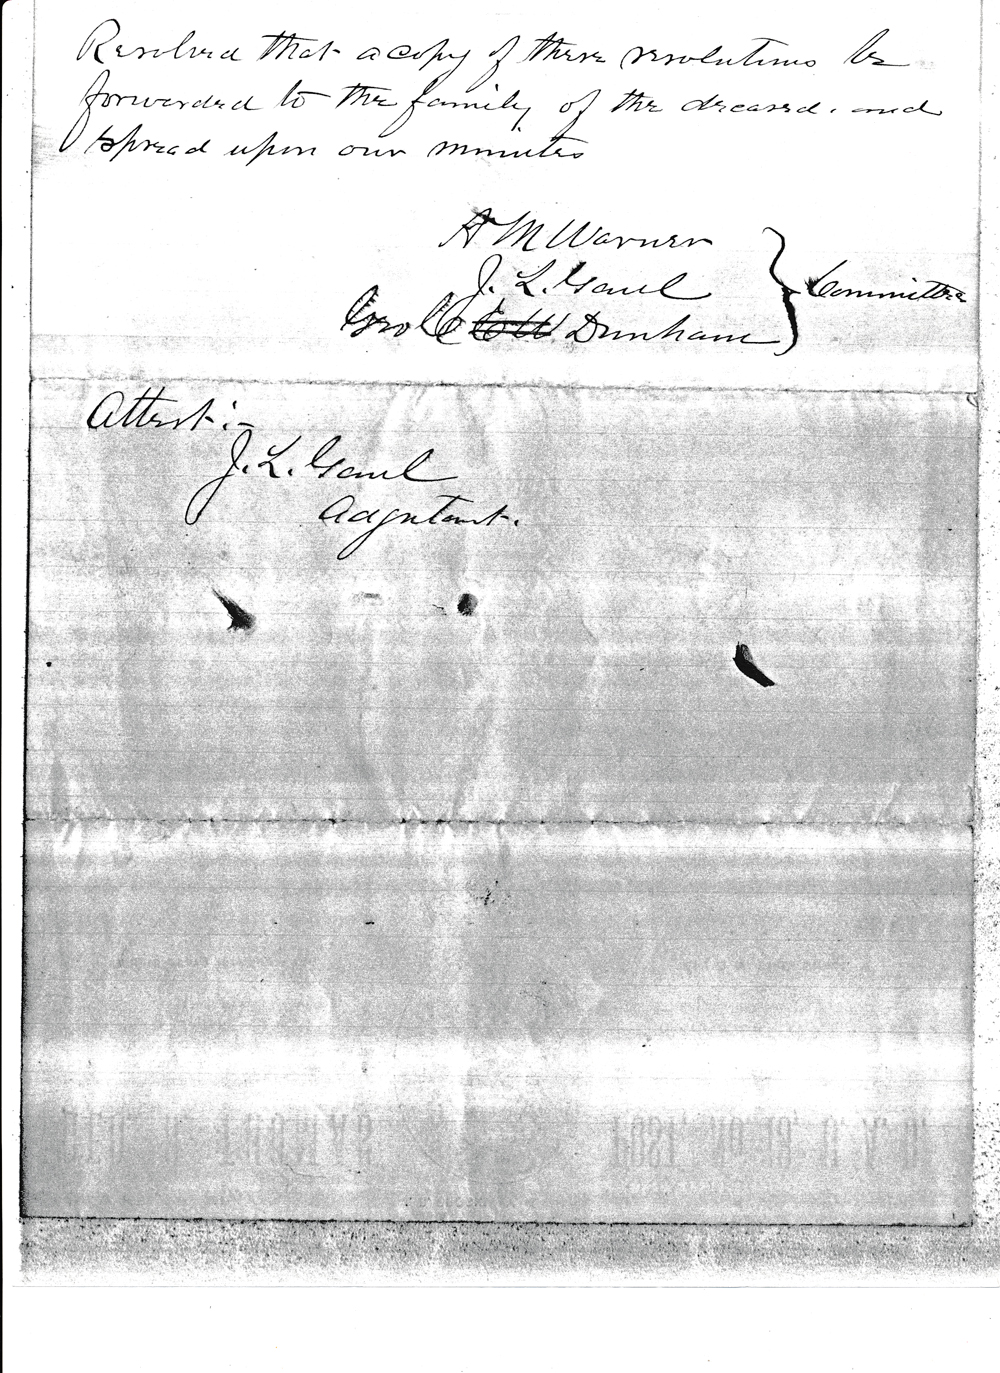 Resolved that a copy of these resolutions be
forwarded to the family of the deceased. and
spread upon our minutes
A M Warner
J. L. Gaul
Dunham
Committee
Attest:-
J. L. Gaul
Adjutant.